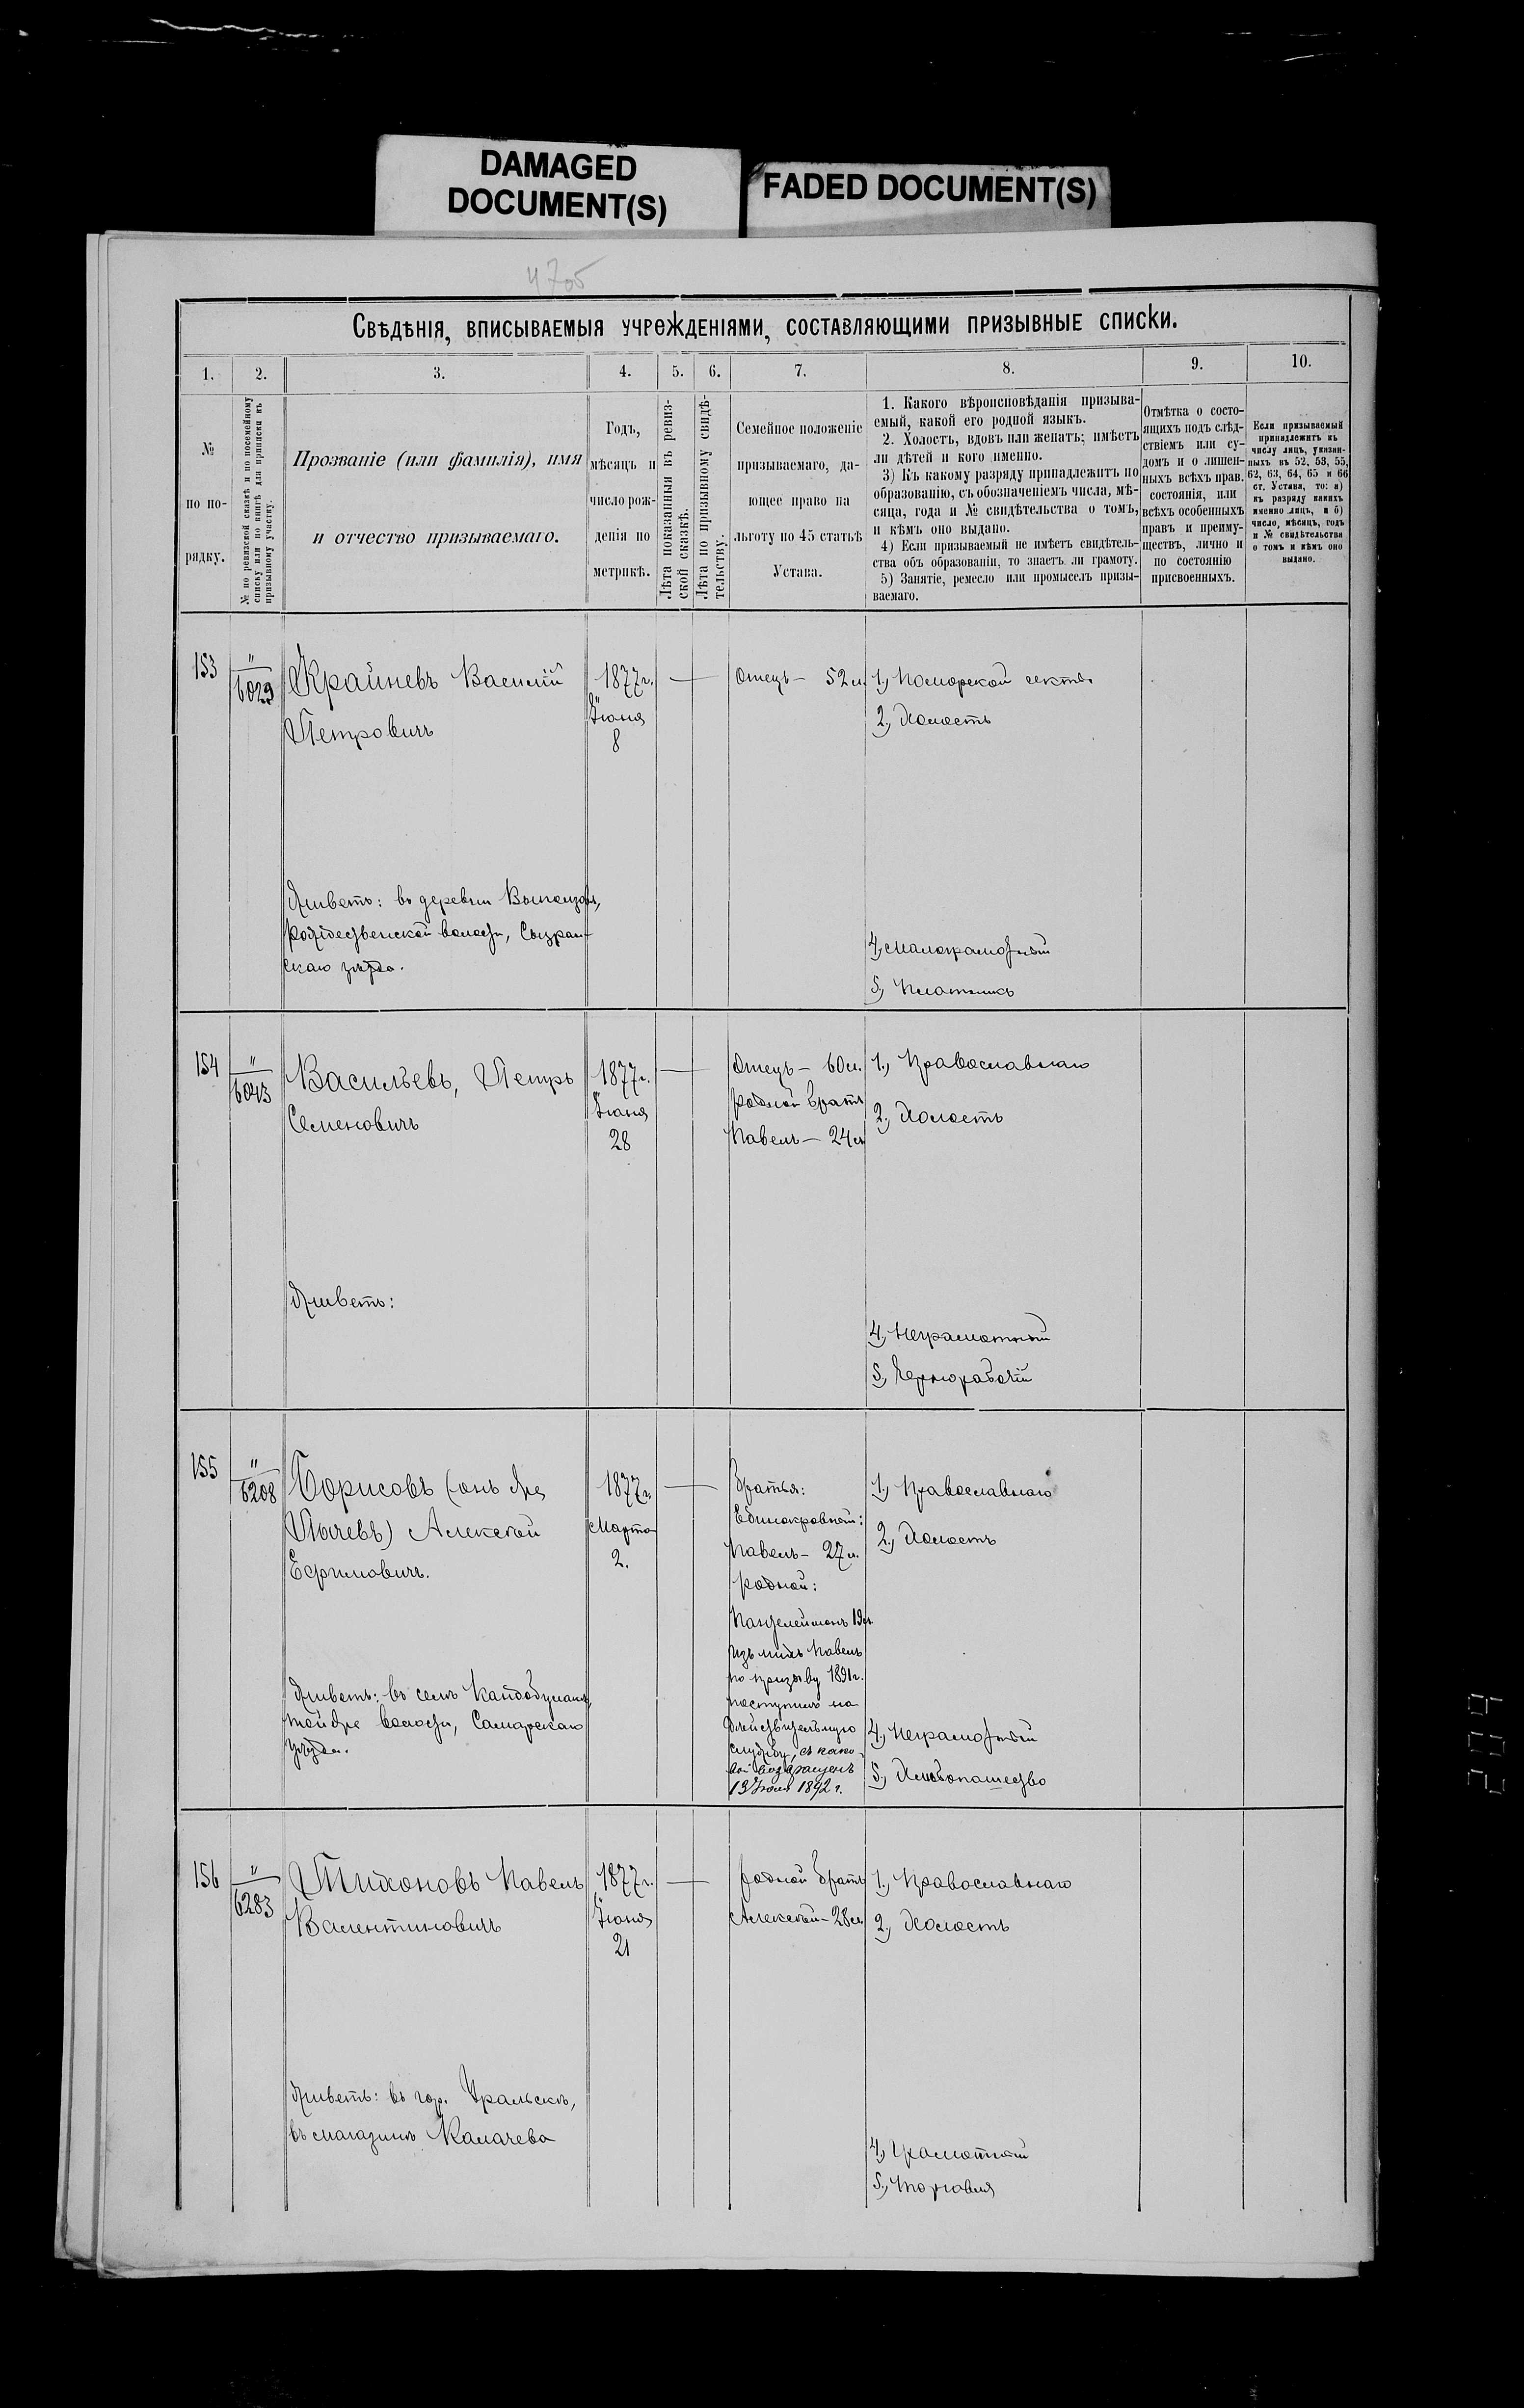 DAMAGED
DOCUMENT(S)
FADED DOCUMENT(S)
4705
Свѣдѣнія, вписываемыя учрежденіями, составляющими призывные списки.
1. 2. 3. 4. 5. 6. 7. 8. 9. 10.
№
по по-
рядку.
№ по ревизской сказкѣ и по посемейному
списку или по книгѣ для приписки къ
призывному участку.
Прозваніе (или фамилія), имя
и отчество призываемаго.
Годъ,
мѣсяцъ и
число рож-
денія по
метрикѣ.
Лѣта показанныя въ ревиз-
ской сказкѣ.
Лѣта по призывному свидѣ-
тельству.
Семейное положеніе
призываемаго, да-
ющее право на
льготу по 45 статьѣ
Устава.
1. Какого вѣроисповѣданія призыва-
емый, какой его родной языкъ.
2. Холостъ, вдовъ или женатъ; имѣетъ
ли дѣтей и кого именно.
3) Къ какому разряду принадлежитъ по
образованію, съ обозначеніемъ числа, мѣ-
сяца, года и № свидѣтельства о томъ,
и кѣмъ оно выдано.
4) Если призываемый не имѣетъ свидѣтель-
ства объ образованіи, то знаетъ ли грамоту.
5) Занятіе, ремесло или промыселъ призы-
ваемаго.
Отмѣтка о состо-
ящихъ подъ слѣд-
ствіемъ или су-
домъ и о лишен-
ныхъ всѣхъ прав.
состоянія, или
всѣхъ особенныхъ
правъ и преиму-
ществъ, лично и
по состоянію
присвоенныхъ.
Если призываемый
принадлежитъ къ
числу лицъ, указан-
ныхъ въ 52, 53, 55,
62, 63, 64, 65 и 66
ст. Устава, то: а)
къ разряду какихъ
именно лицъ, и б)
число, мѣсяцъ, годъ
и № свидѣтельства
о томъ и кѣмъ оно
выдано.
153
"
6029
Крайневъ Василій
Петровичъ
Живетъ: въ деревни
Рождественской волости, Сызран-
скаго уѣзда.
1877 г.
Іюня
8
Отецъ — 52 л.
1, Поморской секты
2, Холостъ
4, Малограмотный
5, Плотникъ
154
"
6043
Васильевъ, Петръ
Семеновичъ
Живетъ:
1877 г.
Іюня
28
Отецъ — 60 л.
родной братъ
Павелъ — 24 л.
1, Православнаго
2, Холостъ
4, Неграмотный
5, Чернорабочій
155
"
6208
Борисовъ (онъ же
Пычевъ) Алексѣй
Ефимовичъ.
Живетъ: въ селѣ Кандабулакѣ,
той же волости, Самарскаго
уѣзда.
1877 г.
Марта
2.
Братья:
Единокровный:
Павелъ — 27 л.
родной:
Пантелеймонъ 19 л.
Изъ нихъ Павелъ
по призыву 1891 г.
поступилъ на
дѣйствительную
службу, съ како-
вой возвращенъ
13 Іюня 1892 г.
1, Православнаго
2, Холостъ
4, Неграмотный
5, Хлѣбопашество
156
"
6283
Тихоновъ Павелъ
Валентиновичъ
Живетъ: въ гор. Уральскѣ,
въ магазинѣ Калачева
1877 г.
Іюня
21
родной братъ
Алексѣй — 28 л.
1, Православнаго
2, Холостъ
4, Грамотный
5, Торговля
209